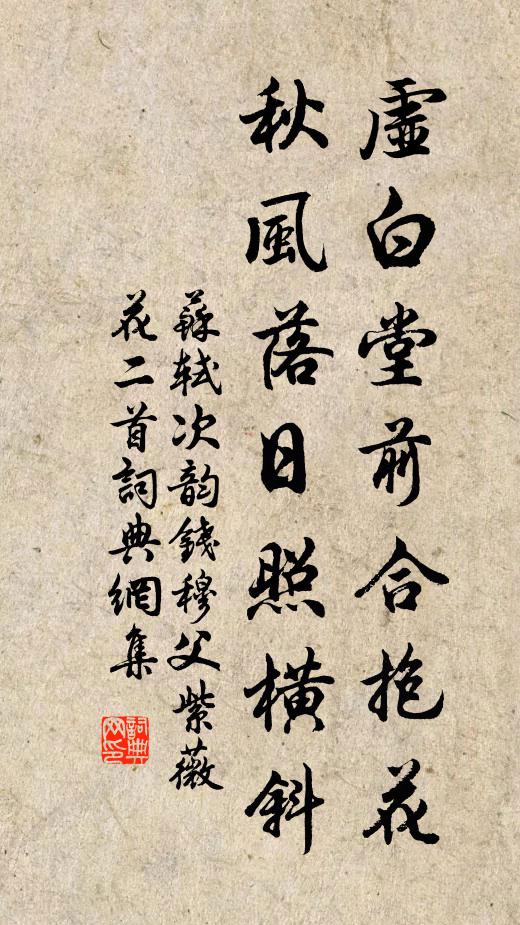 虛白堂前合抱花
秋風落日照橫斜
蘇軾次韵錢穆父紫薇
花二首詞典網集
詞典
网印